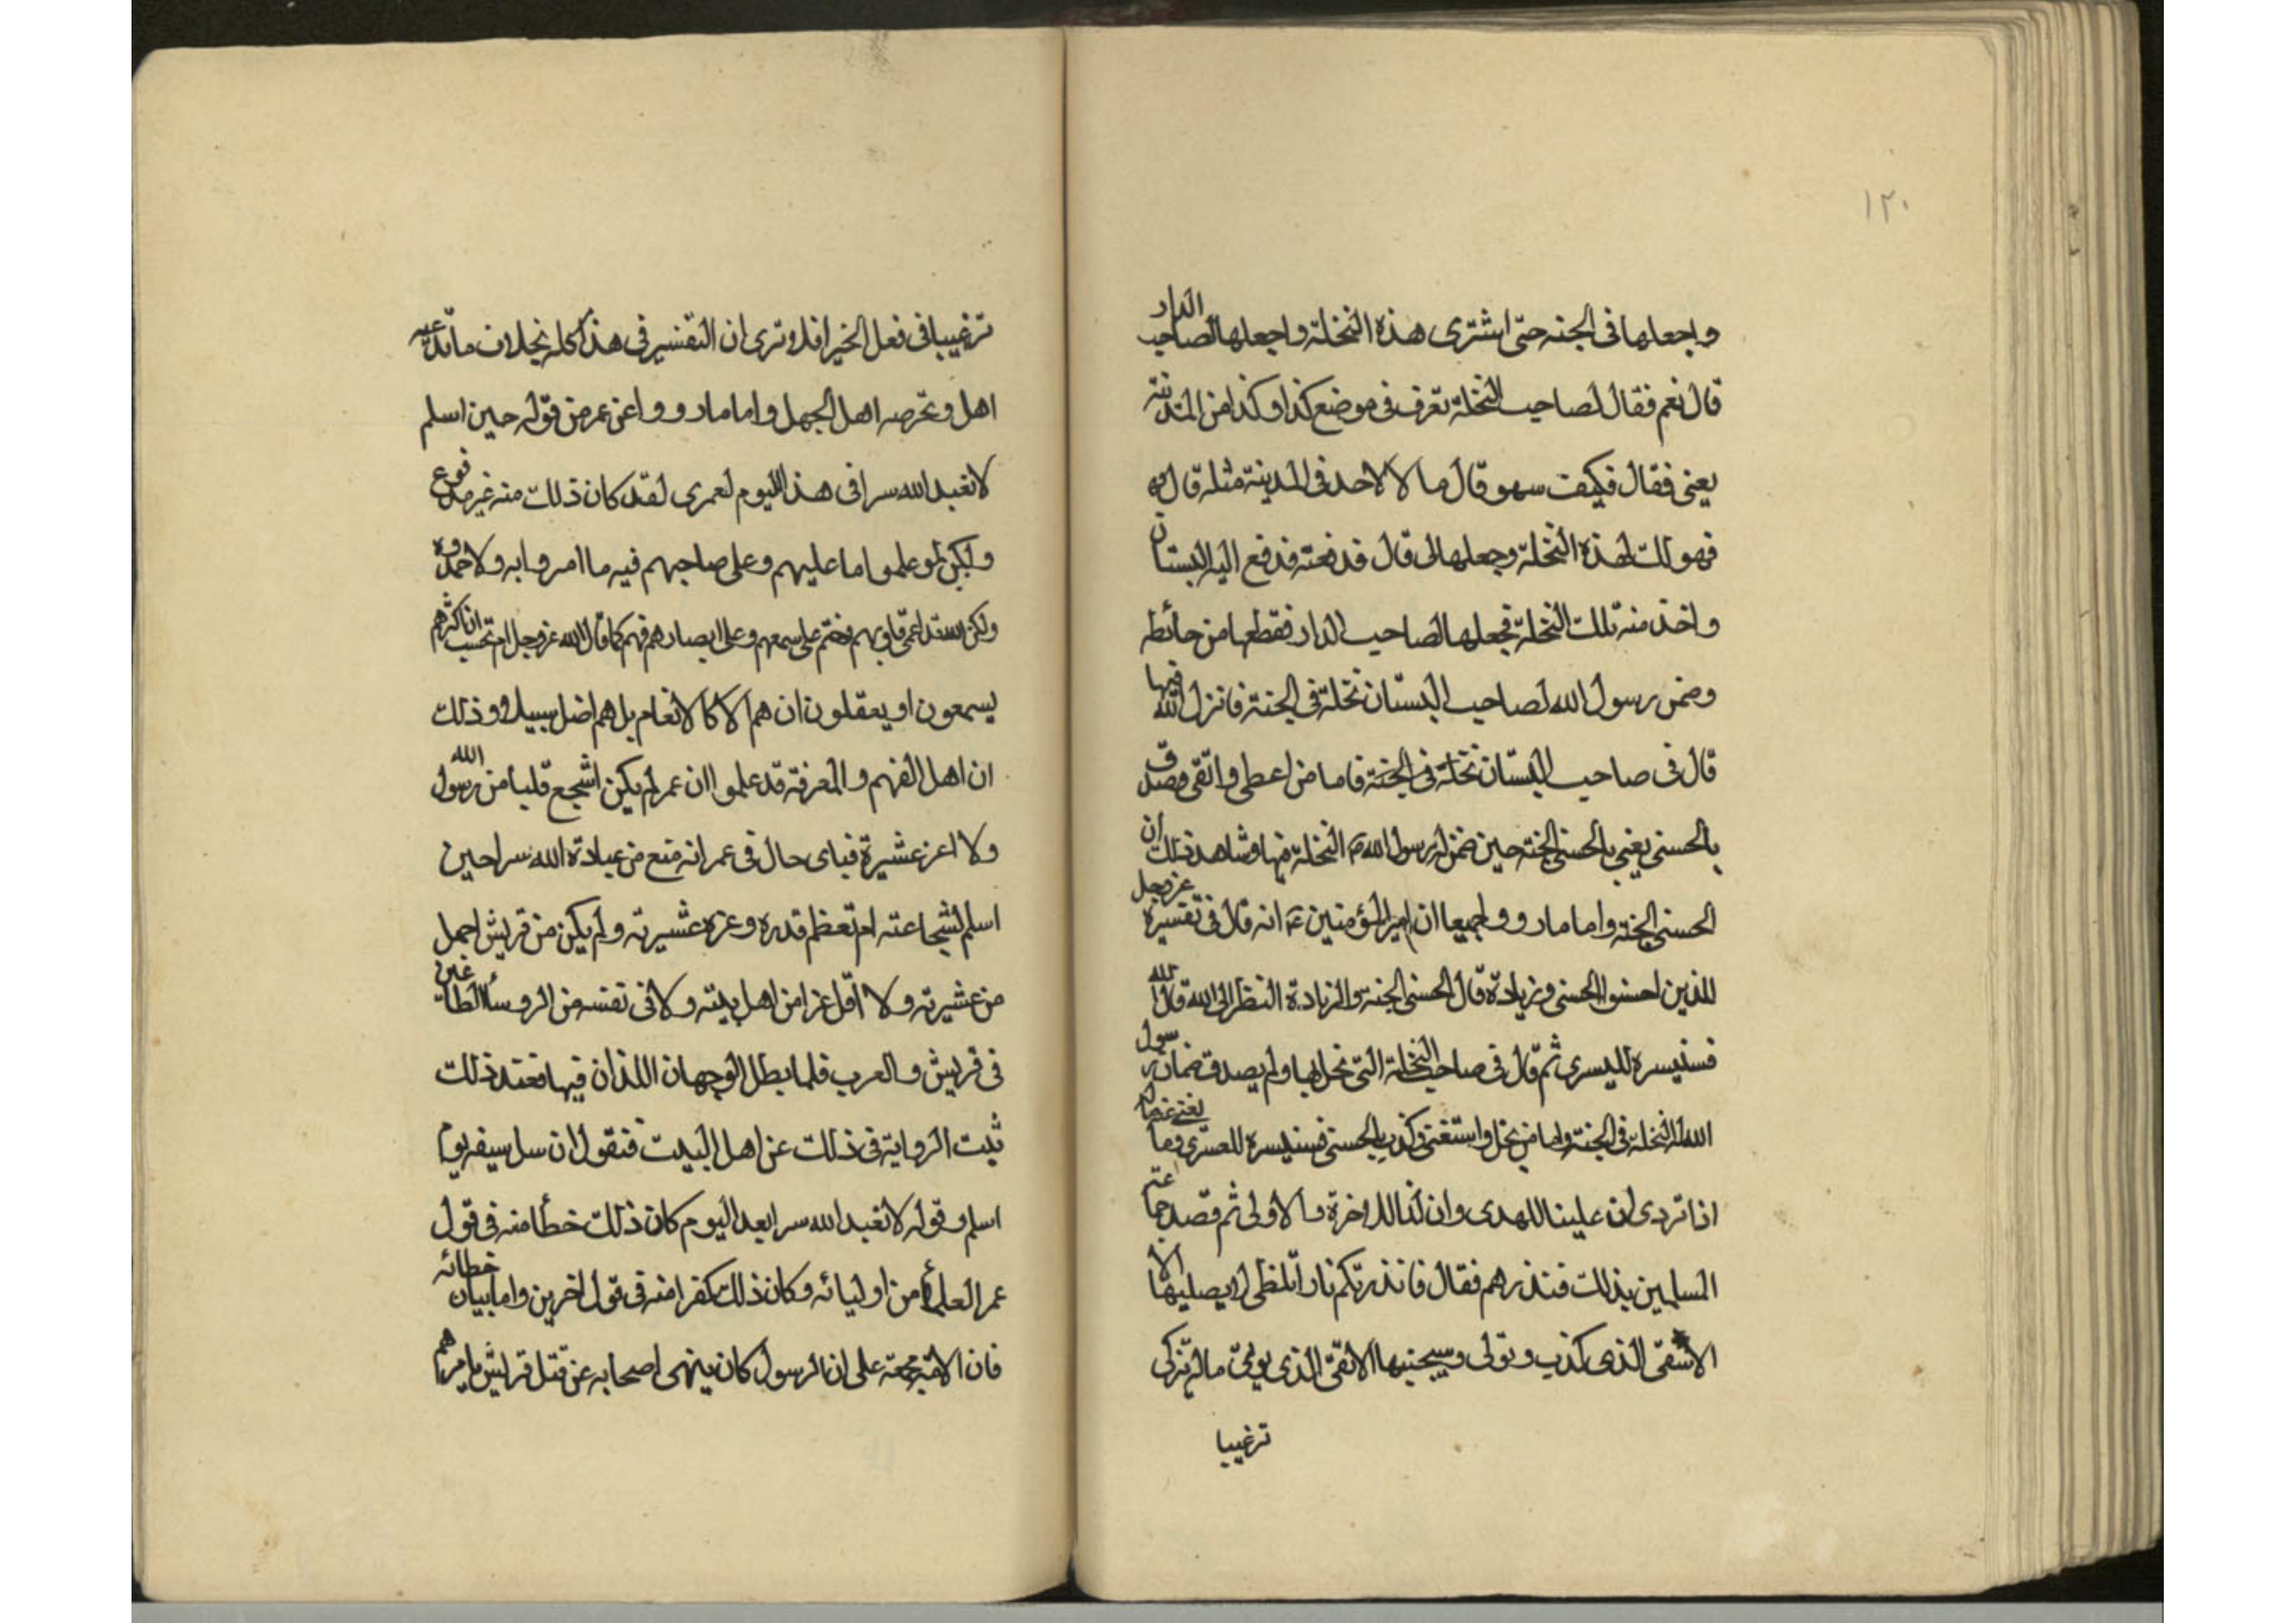 ١٢٠
واجعلها فى الجنه حتى اشترى هذه النخلة واجعلها لصاحب الدار
قال نعم فقال لصاحب النخلة تعرف فى موضع كذا وكذا من المدينة
يعنى فقال فكيف سهو قال ما لا لاحد فى المدينة مثله قال
فهو لك لهذه النخلة وجعلها لى قال قد فعته فدفع اليه البستان
واخذ منه تلك النخلة فجعلها لصاحب الدار فقطعها من حائطه
وضمن رسول الله لصاحب البستان نخلة فى الجنة فانزل الله فيها
قال فى صاحب البستان نخلة فى الجنة فاما من اعطى واتقى وصدق
بالحسنى يعنى بالحسنى الجنه حين ضمن له رسول الله ص النخلة فيها وشاهد ذلك ان
الحسنى الجنة واما ما رووا جميعا ان امير المؤمنين ع انه قال فى تفسيره عز وجل
للذين احسنوا الحسنى وزيادة قال الحسنى الجنة والزيادة النظر الى الله قال الله
فسنيسره لليسرى ثم قال فى صاحب النخلة التى بخل بها ولم يصدق ضمان رسول
الله النخلة فى الجنة واما من بخل واستغنى وكذب بالحسنى فسنيسره للعسرى وما يغنى عنه ماله
اذا تردى ان علينا للهدى وان لنا للاخرة والاولى ثم قصد
المسلمين بذلك فنذرهم فقال فانذرتكم نارا تلظى لا يصليها الا
الاشقى الذى كذب وتولى وسيجنبها الاتقى الذى يوتى ماله يتزكى
ترغيبا
ترغيبا فى فعل الخير افلا ترى ان التفسير فى هذا كله بخلاف ما
اهل وتخرصه اهل الجهل واما ما رووا عن عمر من قوله حين اسلم
لا نعبد الله سرا فى هذا اليوم لعمرى لقد كان ذلك منه غير مدفوع
ولكن لو علموا ما عليهم وعلى صاحبهم فيه ما امروا به ولا
ولكن الله قد اعمى قلوبهم فختم على سمعهم وعلى ابصارهم فهم كما قال الله عز وجل ام تحسب ان اكثرهم
يسمعون او يعقلون ان هم الا كالانعام بل هم اضل سبيلا وذلك
ان اهل الفهم والمعرفة قد علموا ان عمر لم يكن اشجع قلبا من رسول الله
ولا اعز عشيرة فباى حال فى عمر انه منع من عبادة الله سرا حين
اسلم لشجاعته ام لعظم قدره وعزه عشيرته ولم يكن من قريش اجمل
من عشيرته ولا اقل عزا من اهل بيته ولا فى نفسه من الروسأ
فى قريش والعرب فلما بطل الوجهان اللذان فيها فعند ذلك
ثبت الرواية فى ذلك عن اهل البيت فنقول ان سل سيفه يوم
اسلم وقوله لا نعبد الله سرا بعد اليوم كان ذلك خطأ منه فى قول
عمر العلمأ من اوليائه وكان ذلك كفرا منه فى قول اخرين واما بيان خطائه
فان الامة مجمعة على ان الرسول كان ينهى اصحابه عن قتل قريش